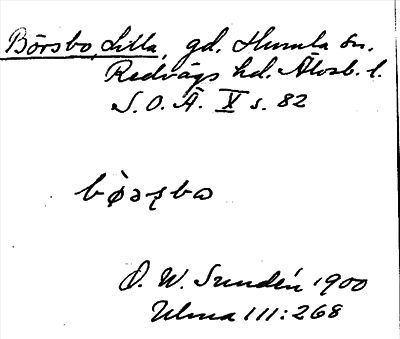 Börsbo, Lilla, gd. Humla sn.
Redvägs hd. Älvsb. l.
S. O. Ä. X s. 82
O. W. Sundén 1900
Ulma 111:268